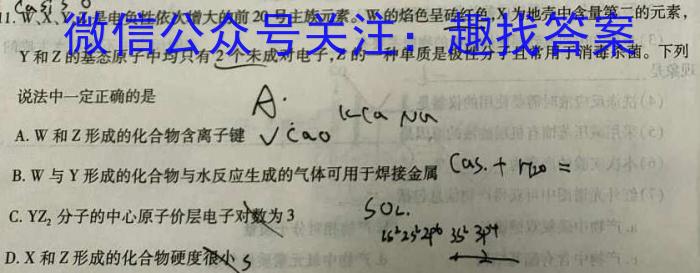 CaSiSO
11. W、X、Y、Z是电负性依次增大的前20号主族元素。W的焰色呈砖红色,X为地壳中含量第二的元素,
微信公众号关注:趣找答案
Y和Z的基态原子中均只有2个未成对电子,Z的一种单质是极性分子且常用于消毒杀菌。下列
说法中一定正确的是
A.
K Ca Na
A. W和Z形成的化合物含离子键 √ CaO
B. W与Y形成的化合物与水反应生成的气体可用于焊接金属 CaS. + H2O =
C. YZ₂分子的中心原子价层电子对数为3
SO2.
1s² 2s² 2p⁶ 3s² 3p⁴
D. X和Z形成的化合物硬度很小 S
2